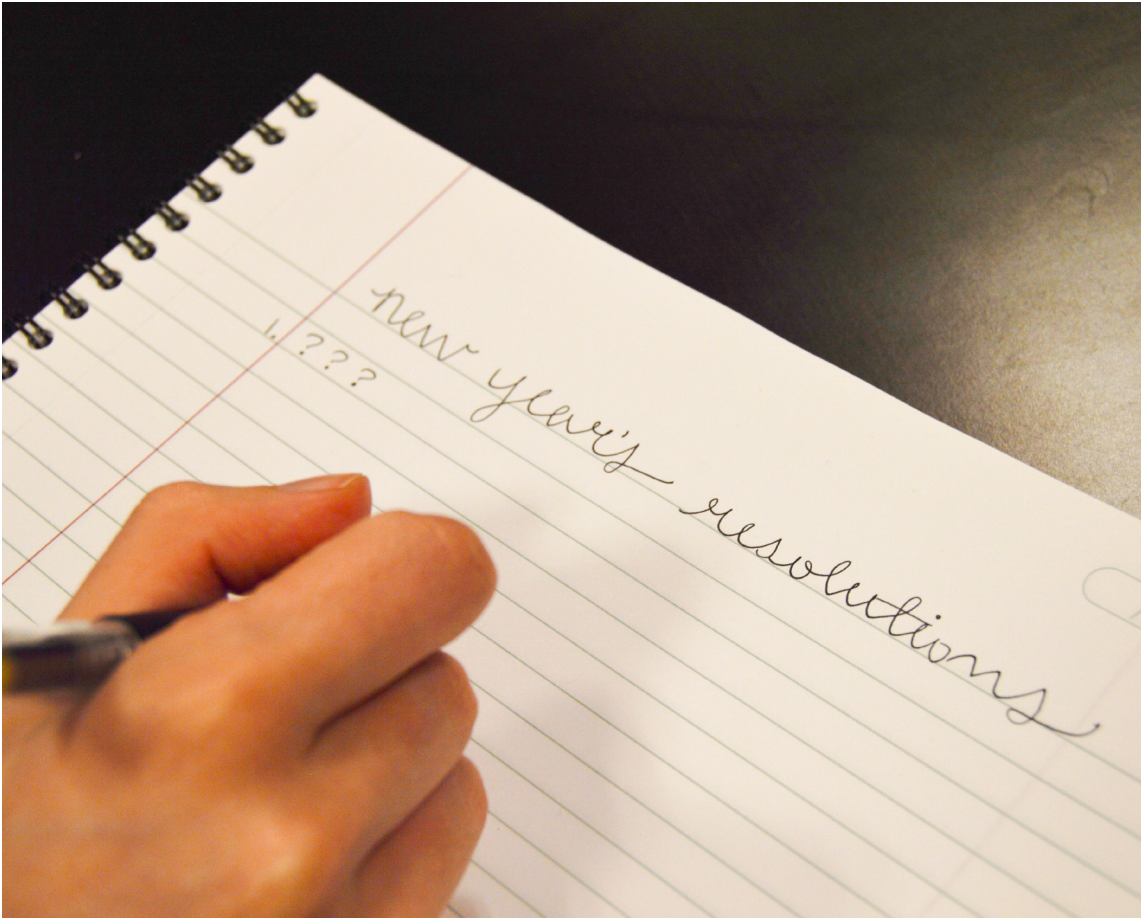 new year's resolutions
1. ???